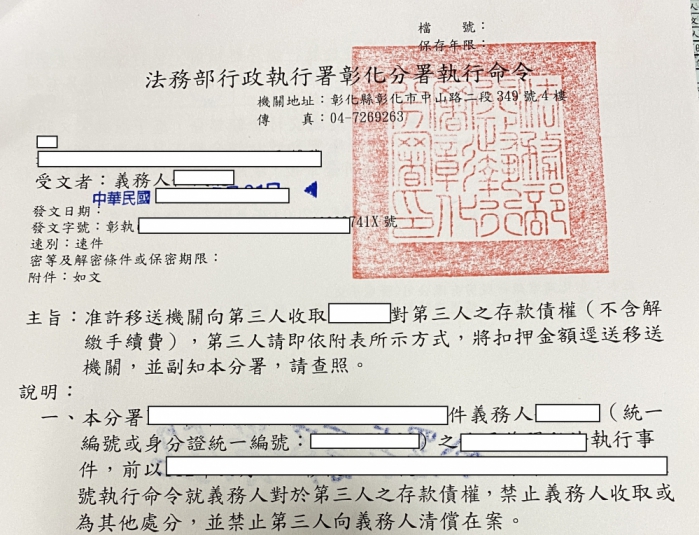 檔　　號：
保存年限：
法務部行政執行署彰化分署執行命令
機關地址：彰化縣彰化市中山路二段349號4樓
傳　　真：04-7269263
受文者：義務人
中華民國
發文日期：
發文字號：彰執 741X號
速別：速件
密等及解密條件或保密期限：
附件：如文
主旨：准許移送機關向第三人收取 對第三人之存款債權（不含解
繳手續費），第三人請即依附表所示方式，將扣押金額逕送移送
機關，並副知本分署，請查照。
說明：
一、本分署 件義務人 （統一
編號或身分證統一編號： ）之 執行事
件，前以
號執行命令就義務人對於第三人之存款債權，禁止義務人收取或
為其他處分，並禁止第三人向義務人清償在案。